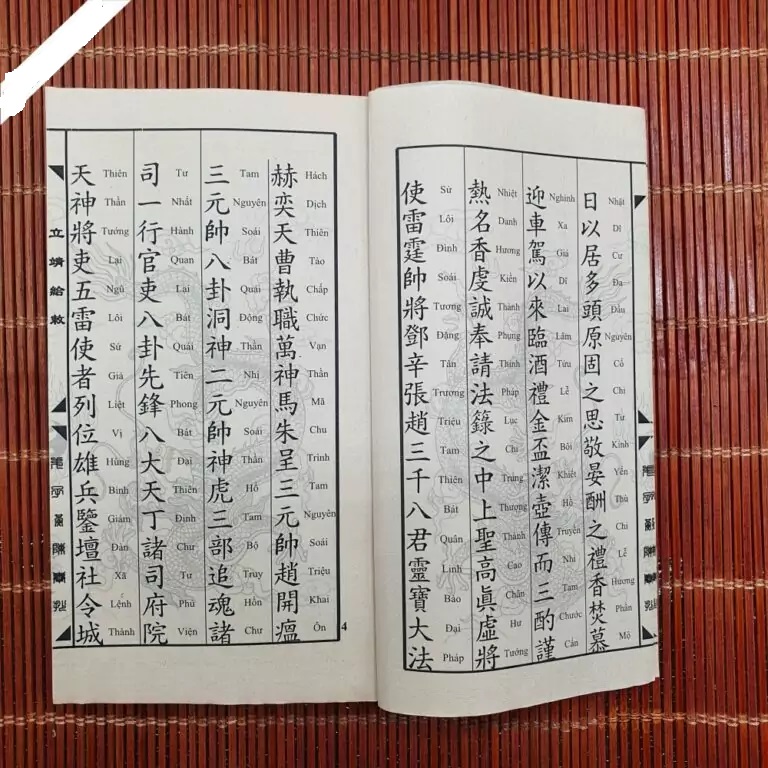 日以居多頭原固之思敬晏酬之禮香焚慕
Nhật Dĩ Cư Đa Đầu Nguyên Cố Chi Tư Kính Yến Thù Chi Lễ Hương Phần Mộ
迎車駕以來臨酒禮金盃潔壺傳而三酌謹
Nghinh Xa Giá Dĩ Lai Lâm Tửu Lễ Kim Bôi Khiết Hồ Truyền Nhi Tam Chước Cẩn
熱名香虔誠奉請法籙之中上聖高眞虛將
Nhiệt Danh Hương Kiền Thành Phụng Thỉnh Pháp Lục Chi Trung Thượng Thánh Cao Chân Hư Tướng
使雷霆帥將鄧辛張趙三千八君靈寶大法
Sứ Lôi Đình Soái Tương Đặng Tân Trương Triệu Tam Thiên Bát Quân Linh Bảo Đại Pháp
赫奕天曹執職萬神馬朱呈三元帥趙開瘟
Hách Dịch Thiên Tào Chấp Chức Vạn Thần Mã Chu Trinh Tam Nguyên Soái Triệu Khai Ôn
三元帥八卦洞神二元帥神虎三部追魂諸
Tam Nguyên Soái Bát Quái Động Thần Nhị Nguyên Soái Thần Hổ Tam Bộ Truy Hồn Chư
司一行官吏八卦先鋒八大天丁諸司府院
Tư Nhất Hành Quan Lại Bát Quái Tiên Phong Bát Đại Thiên Định Chư Tư Phủ Viện
天神將吏五雷使者列位雄兵鑒壇社令城
Thiên Thần Tướng Lại Ngũ Lôi Sứ Giả Liệt Vị Hùng Binh Giám Đàn Xã Lệnh Thành
立靖給敕
4